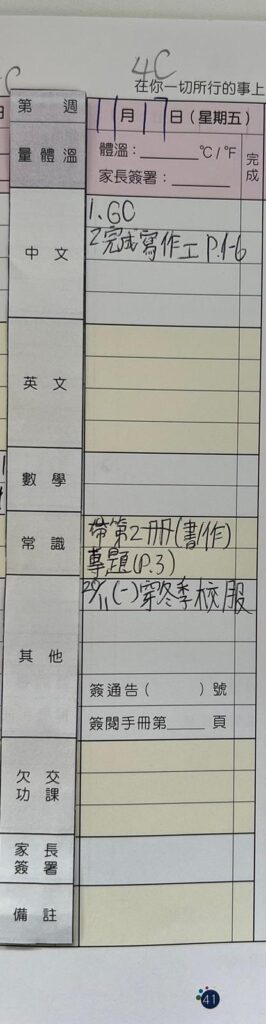 4C
在你一切所行的事上
第 週 11月17日(星期五)
量體溫 體溫:______ °C/°F
家長簽署:______
完成
中文 1. GC
2完成寫作工 P.1-6
英文
數學
常識 帶第2冊(書作)
專題(P.3)
其他 20/11(一)穿冬季校服
簽通告( )號
簽閱手冊第____頁
欠交
功課
家長
簽署
備註
41